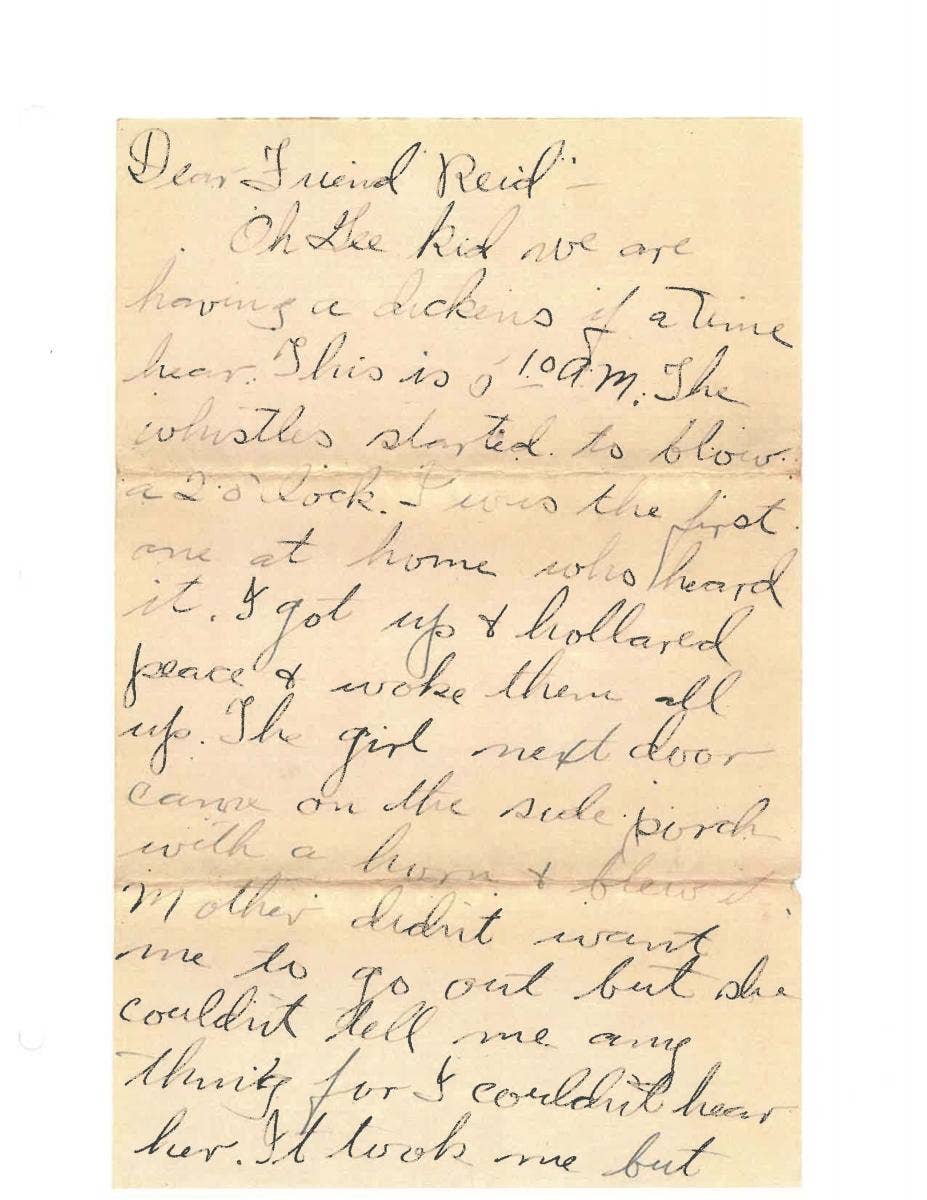 Dear Friend "Reid" –
Oh Gee kid we are
having a dickens of a time
hear. This is 10 A.M. The
whistles started to blow
a 2 o'clock. I was the first
one at home who heard
it. I got up & hollared
peace & woke them all
up. The girl next door
came on the side porch
with a horn & blew it
Mother didnt want
me to go out but she
couldnt tell me any
thing for I couldnt hear
her. It took me but